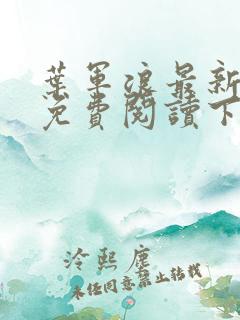 葉軍浪最新
免費閱讀下
冷熙塵
未经同意禁止转载